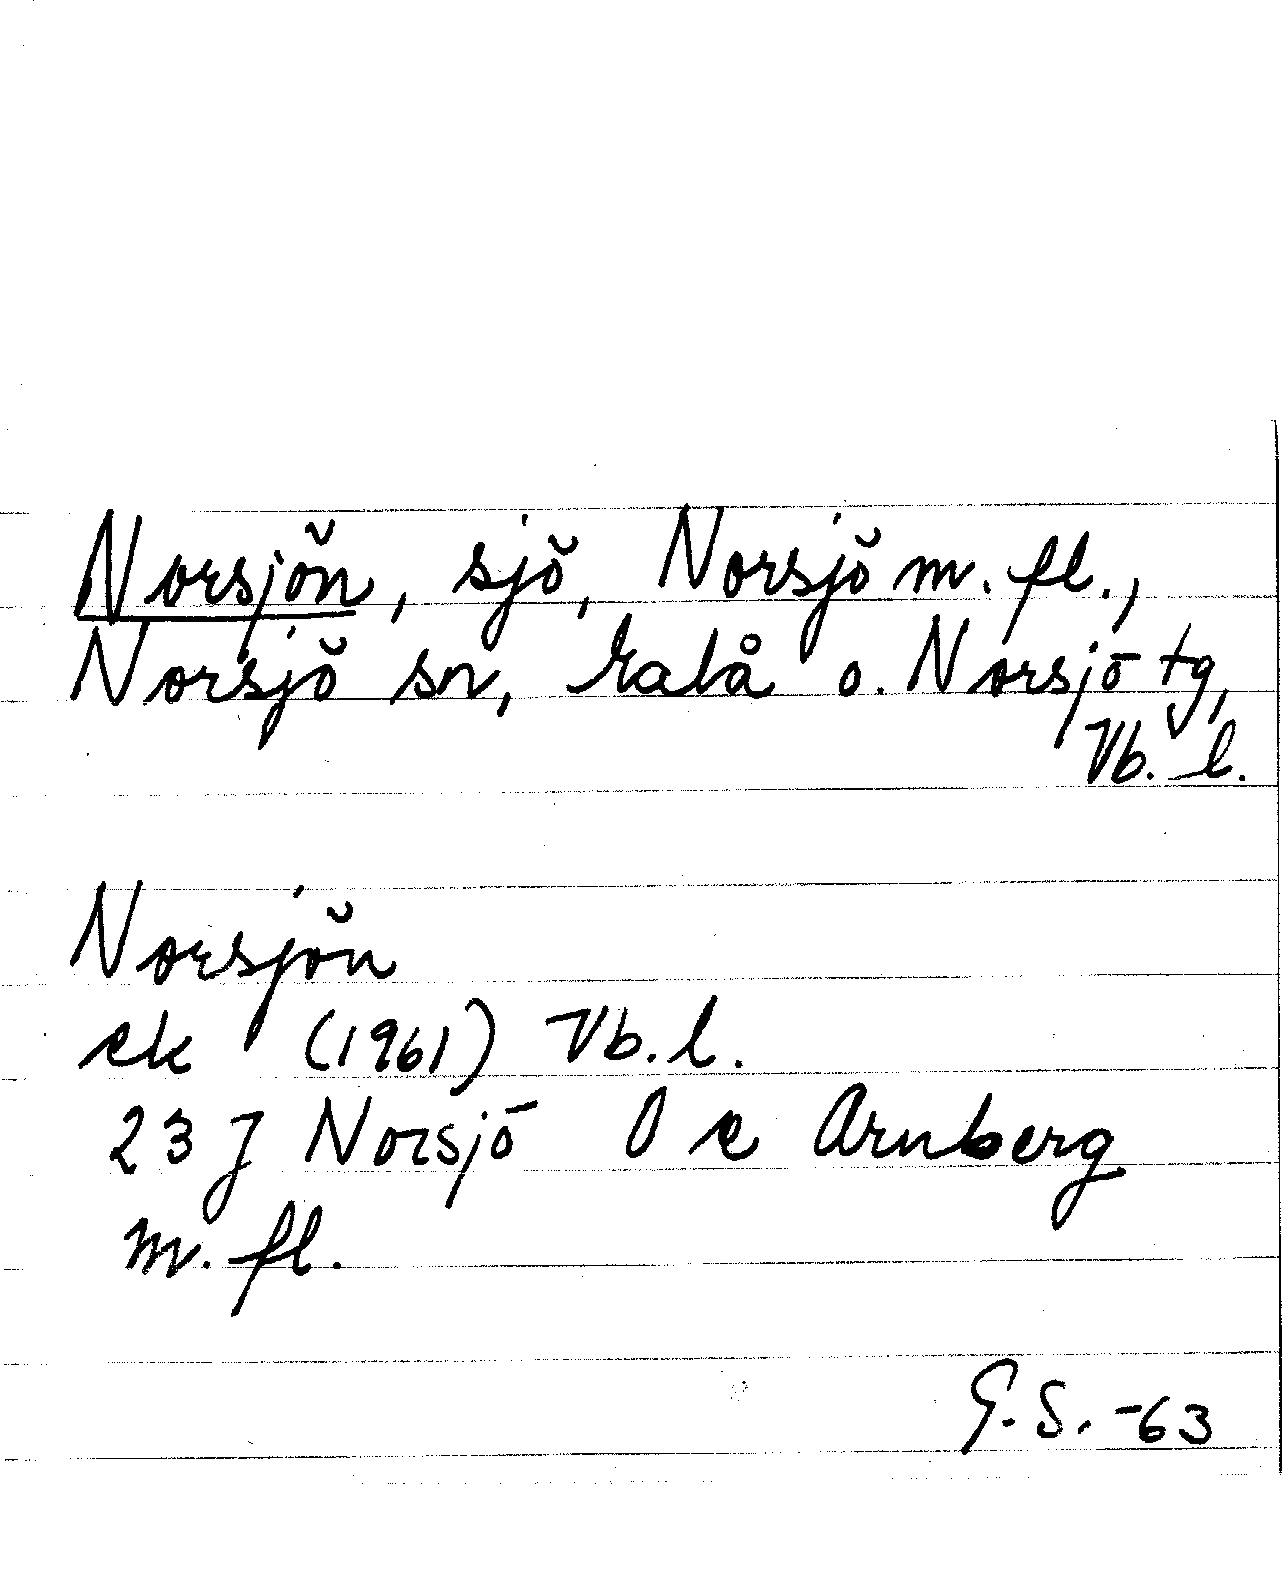 Norsjön, sjö, Norsjö m. fl.,
Norsjö sn, Malå o. Norsjö tg,
Vb. l.
Norsjön
ek (1961) Vb. l.
23 J Norsjö O e Arnberg
m. fl.
G. S. -63